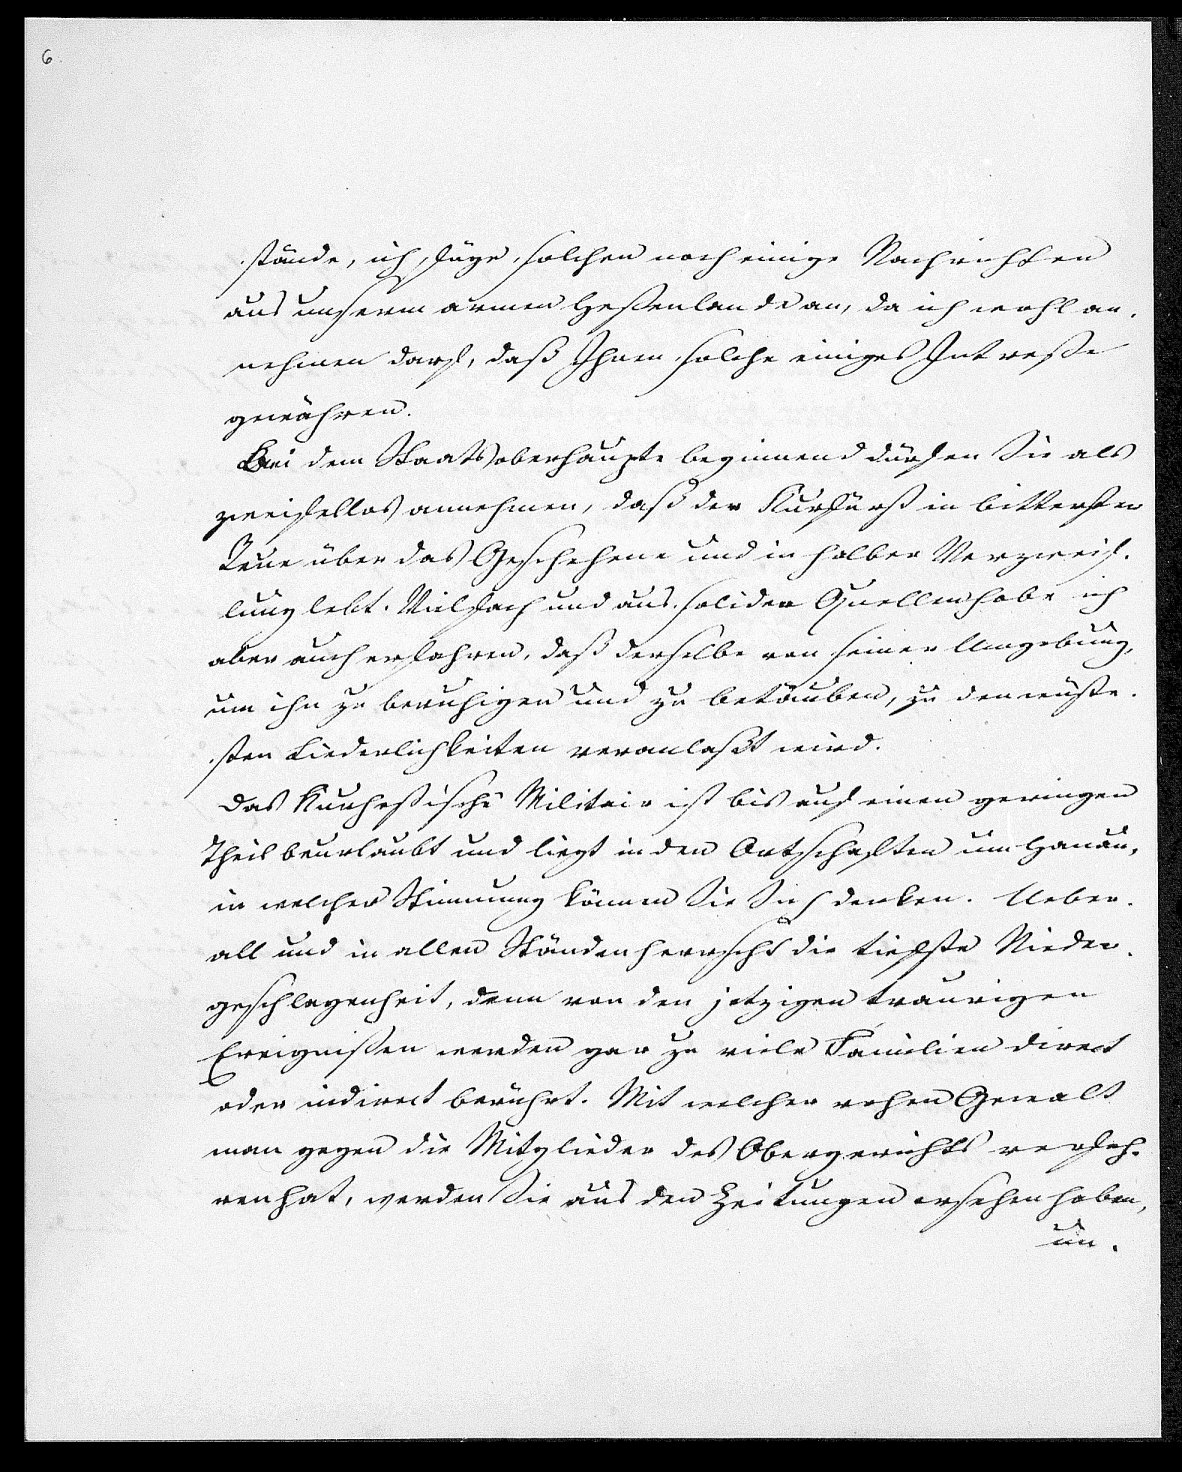 6
stände, ich füge solchen noch einige Nachrichten
aus unserm armen Heßenlande an, da ich wohl an-
nehmen darf, daß Ihnen solche einiges Intreße
gewähren.
Bei dem Staatsoberhaupte beginnend dürfen Sie als
zweifellos annehmen, daß der Kurfürst in bitterster
Reue über das Geschehene und in halber Verzweif-
lung lebt. Vielfach und aus solider Quellen habe ich
aber auch erfahren, daß derselbe von seiner Umgebung,
um ihn zu beruhigen und zu betäuben, zu den wüste-
sten Liederlichkeiten veranlaßt wird.
Das Kurheßische Militair ist bis auf einen geringen
Theil beurlaubt und liegt in den Ortschaften um Hanau,
in welcher Stimmung können Sie Sich denken. Ueber-
all und in allen Ständen herrscht die tiefste Nieder-
geschlagenheit, denn von den jetzigen traurigen
Ereignißen werden gar zu viele Familien direct
oder indirect berührt. Mit welcher rohen Gewalt
man gegen die Mitglieder des Obergerichts verfah-
ren hat, werden Sie aus den Zeitungen ersehen haben,
un-